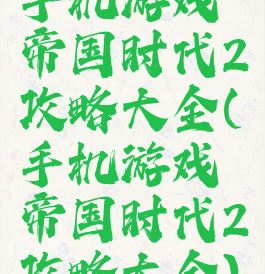 手机游戏
帝国时代2
攻略大全(
手机游戏
帝国时代2
攻略大全)